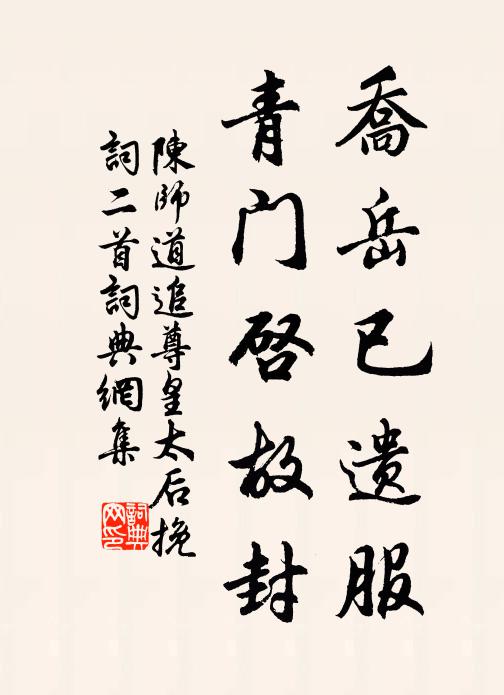 喬岳已遺服
青门啓故封
陳師道追尊皇太后挽
詞二首詞典網集
詞典
网印